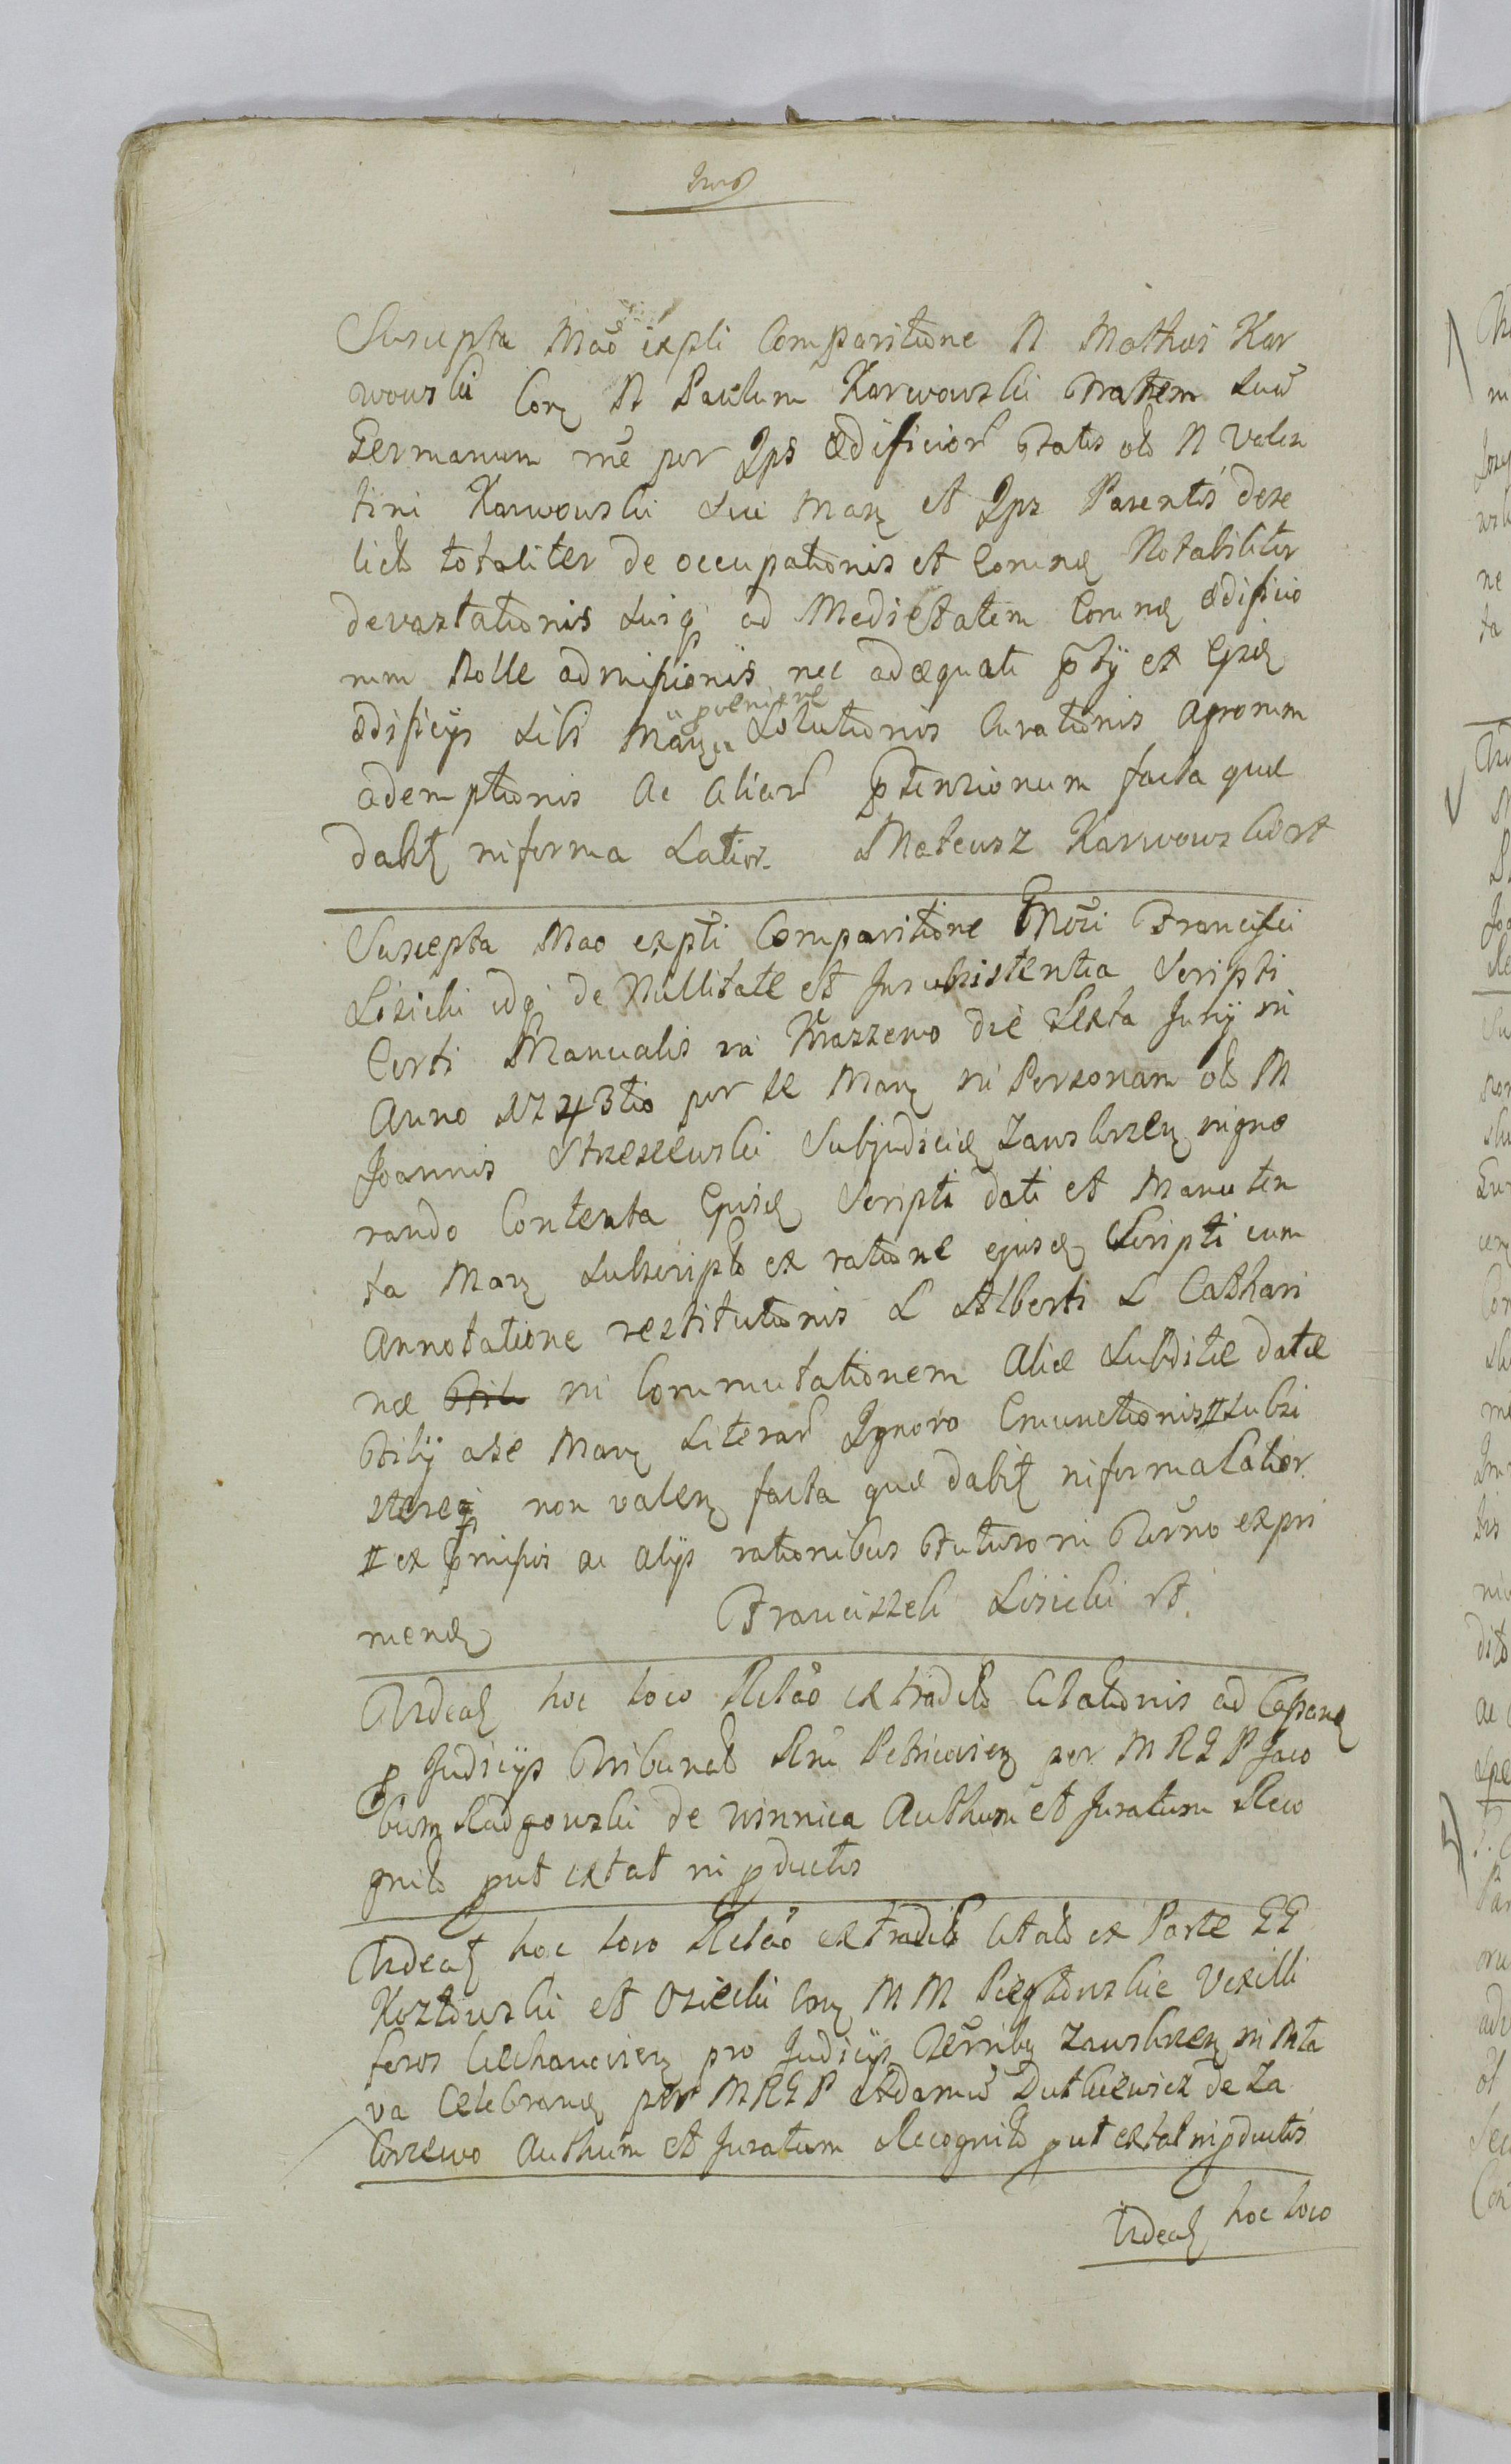 Suscepta Mãõ expti Comparitione N Mathei Kar
wowski Con N Paulum Karwowski Fratrem Suũ
Germanum rñe per Ips ædificior Fratis olo N Valen
tini Karwowski Sui Man et Ips Parentis dere
licto totaliter de occupationis et Eorund Notabiliter
devastationis Suiq ad Medietatem Eorund ædificio
rum Nolle admissionis nec adæquati ptij ex Ejusd
ædificijs Sibi Man Solutionis Curationis agrorum
ademptionis ac aliar ptensionum facta quæ
dabit informa Latior. Mateusz Karwowski
Suscepta Mao expti Comparitione Francisci
Lisicki idq de Nullitate et Insubsistentia Scripti
Certi Manualis in die Sexta Junij in
Anno 1743tio per se Man in Personam olo M
Joannis Strzeszewski Subjudicis Zawskrzen igno
rando Contenta Ejusd Scripti dati et Manu ten
ta Man Subscripto ex ratione ejusd Scripti cum
Annotatione restitutionis L Alberti L Cathari
næ in Commutationem aliæ Subditæ datæ
Filij a se Man Literar Ignaro Emunctionis # subsi
stereq non valen facta quæ dabit informa Latior.
# ex pmissis ac alijs rationibus Futuro in Terño expri
mend Franciszek Lisicki
Videat hoc loco Relão ex tradito Citationis ad Cassand
p Judicijs Tribunalo Rni Petricovien per M R I P Jaco
bum Radgowski de Winnica Authum et Juratum Reco
gnito put extat in pductis
Videat hoc loco Relão extradito Citato ex Parte GG
Kozłowski et Osiecki Con M M Vexilli
feros Ciechanovien pro Judicijs Terribq Zawskrzen in Mła
va Celebrand per M R I P Adamũ Dutkiewicz de Za
krzewo Authum et Juratum Recognito put extat in pductis
Videat hoc loco